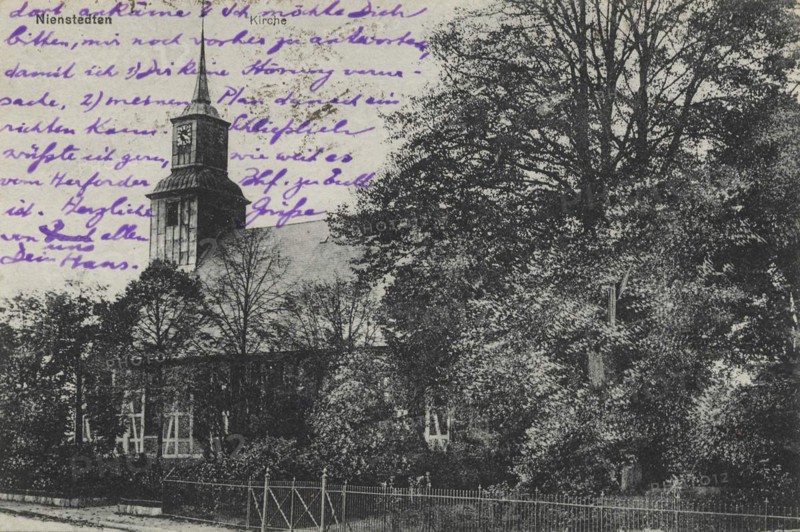 doch ankäme? Ich möchte Dich
Nienstedten Kirche
bitten, mir noch vorher zu antworten,
damit ich 1) Dir keine Störung verur-
sache, 2) meinen Plan danach ein
richten kann. Schließlich
wüßte ich gern, wie weit es
vom Herforder Bhf. zu Euch
ist. Herzliche Grüße
von uns allen
Dein Hans.